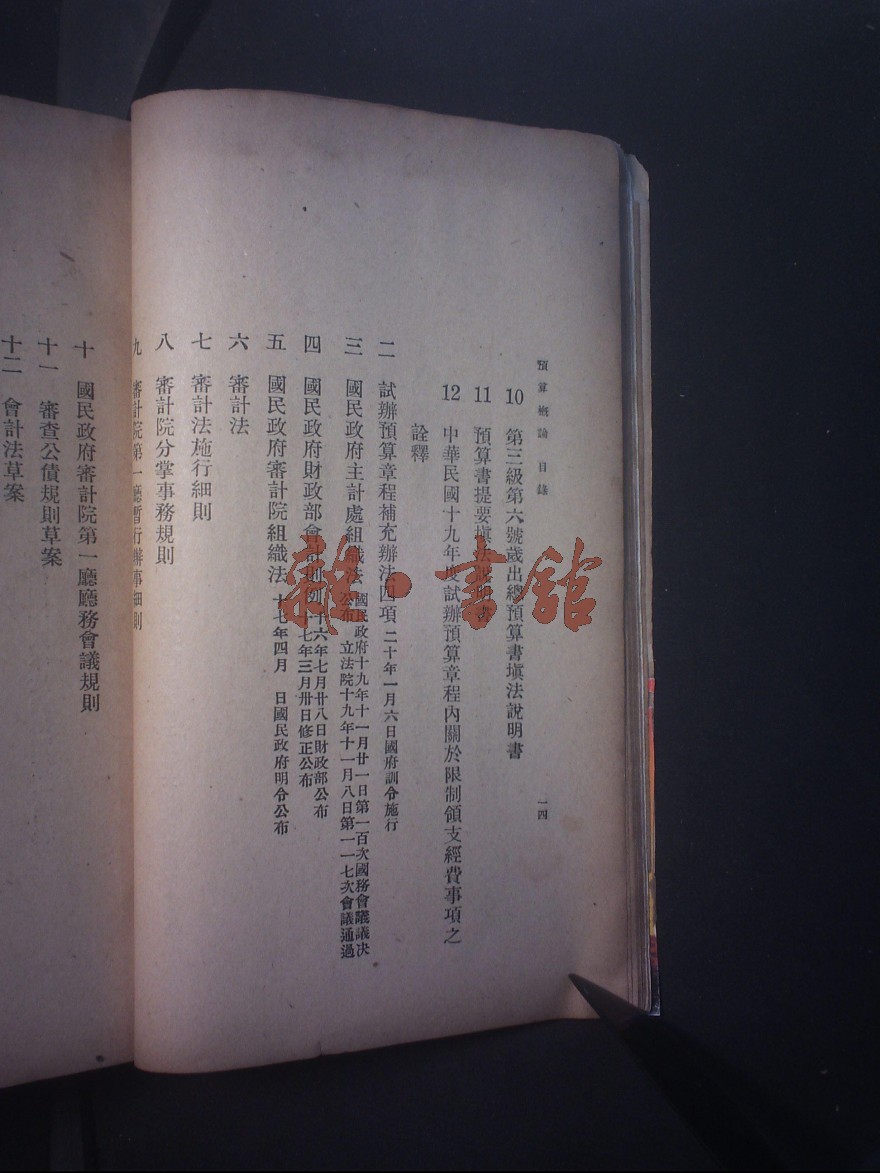 預算概論 目錄
一四
10 第三級第六號歲出總預算書填法說明書
11 預算書提要填法說明書
12 中華民國十九年度試辦預算章程內關於限制領支經費事項之
詮釋
二 試辦預算章程補充辦法四項 二十年一月六日國府訓令施行
三 國民政府主計處組織法 國民政府十九年十一月廿一日第一百次國務會議議決
公布 立法院十九年十一月八日第一一七次會議通過
四 國民政府財政部會計則例 十六年七月廿八日財政部公布
十七年三月卅日修正公布
五 國民政府審計院組織法 十七年四月 日國民政府明令公布
六 審計法
七 審計法施行細則
八 審計院分掌事務規則
九 審計院第一廳暫行辦事細則
十 國民政府審計院第一廳廳務會議規則
十一 審查公債規則草案
十二 會計法草案
雜·書館